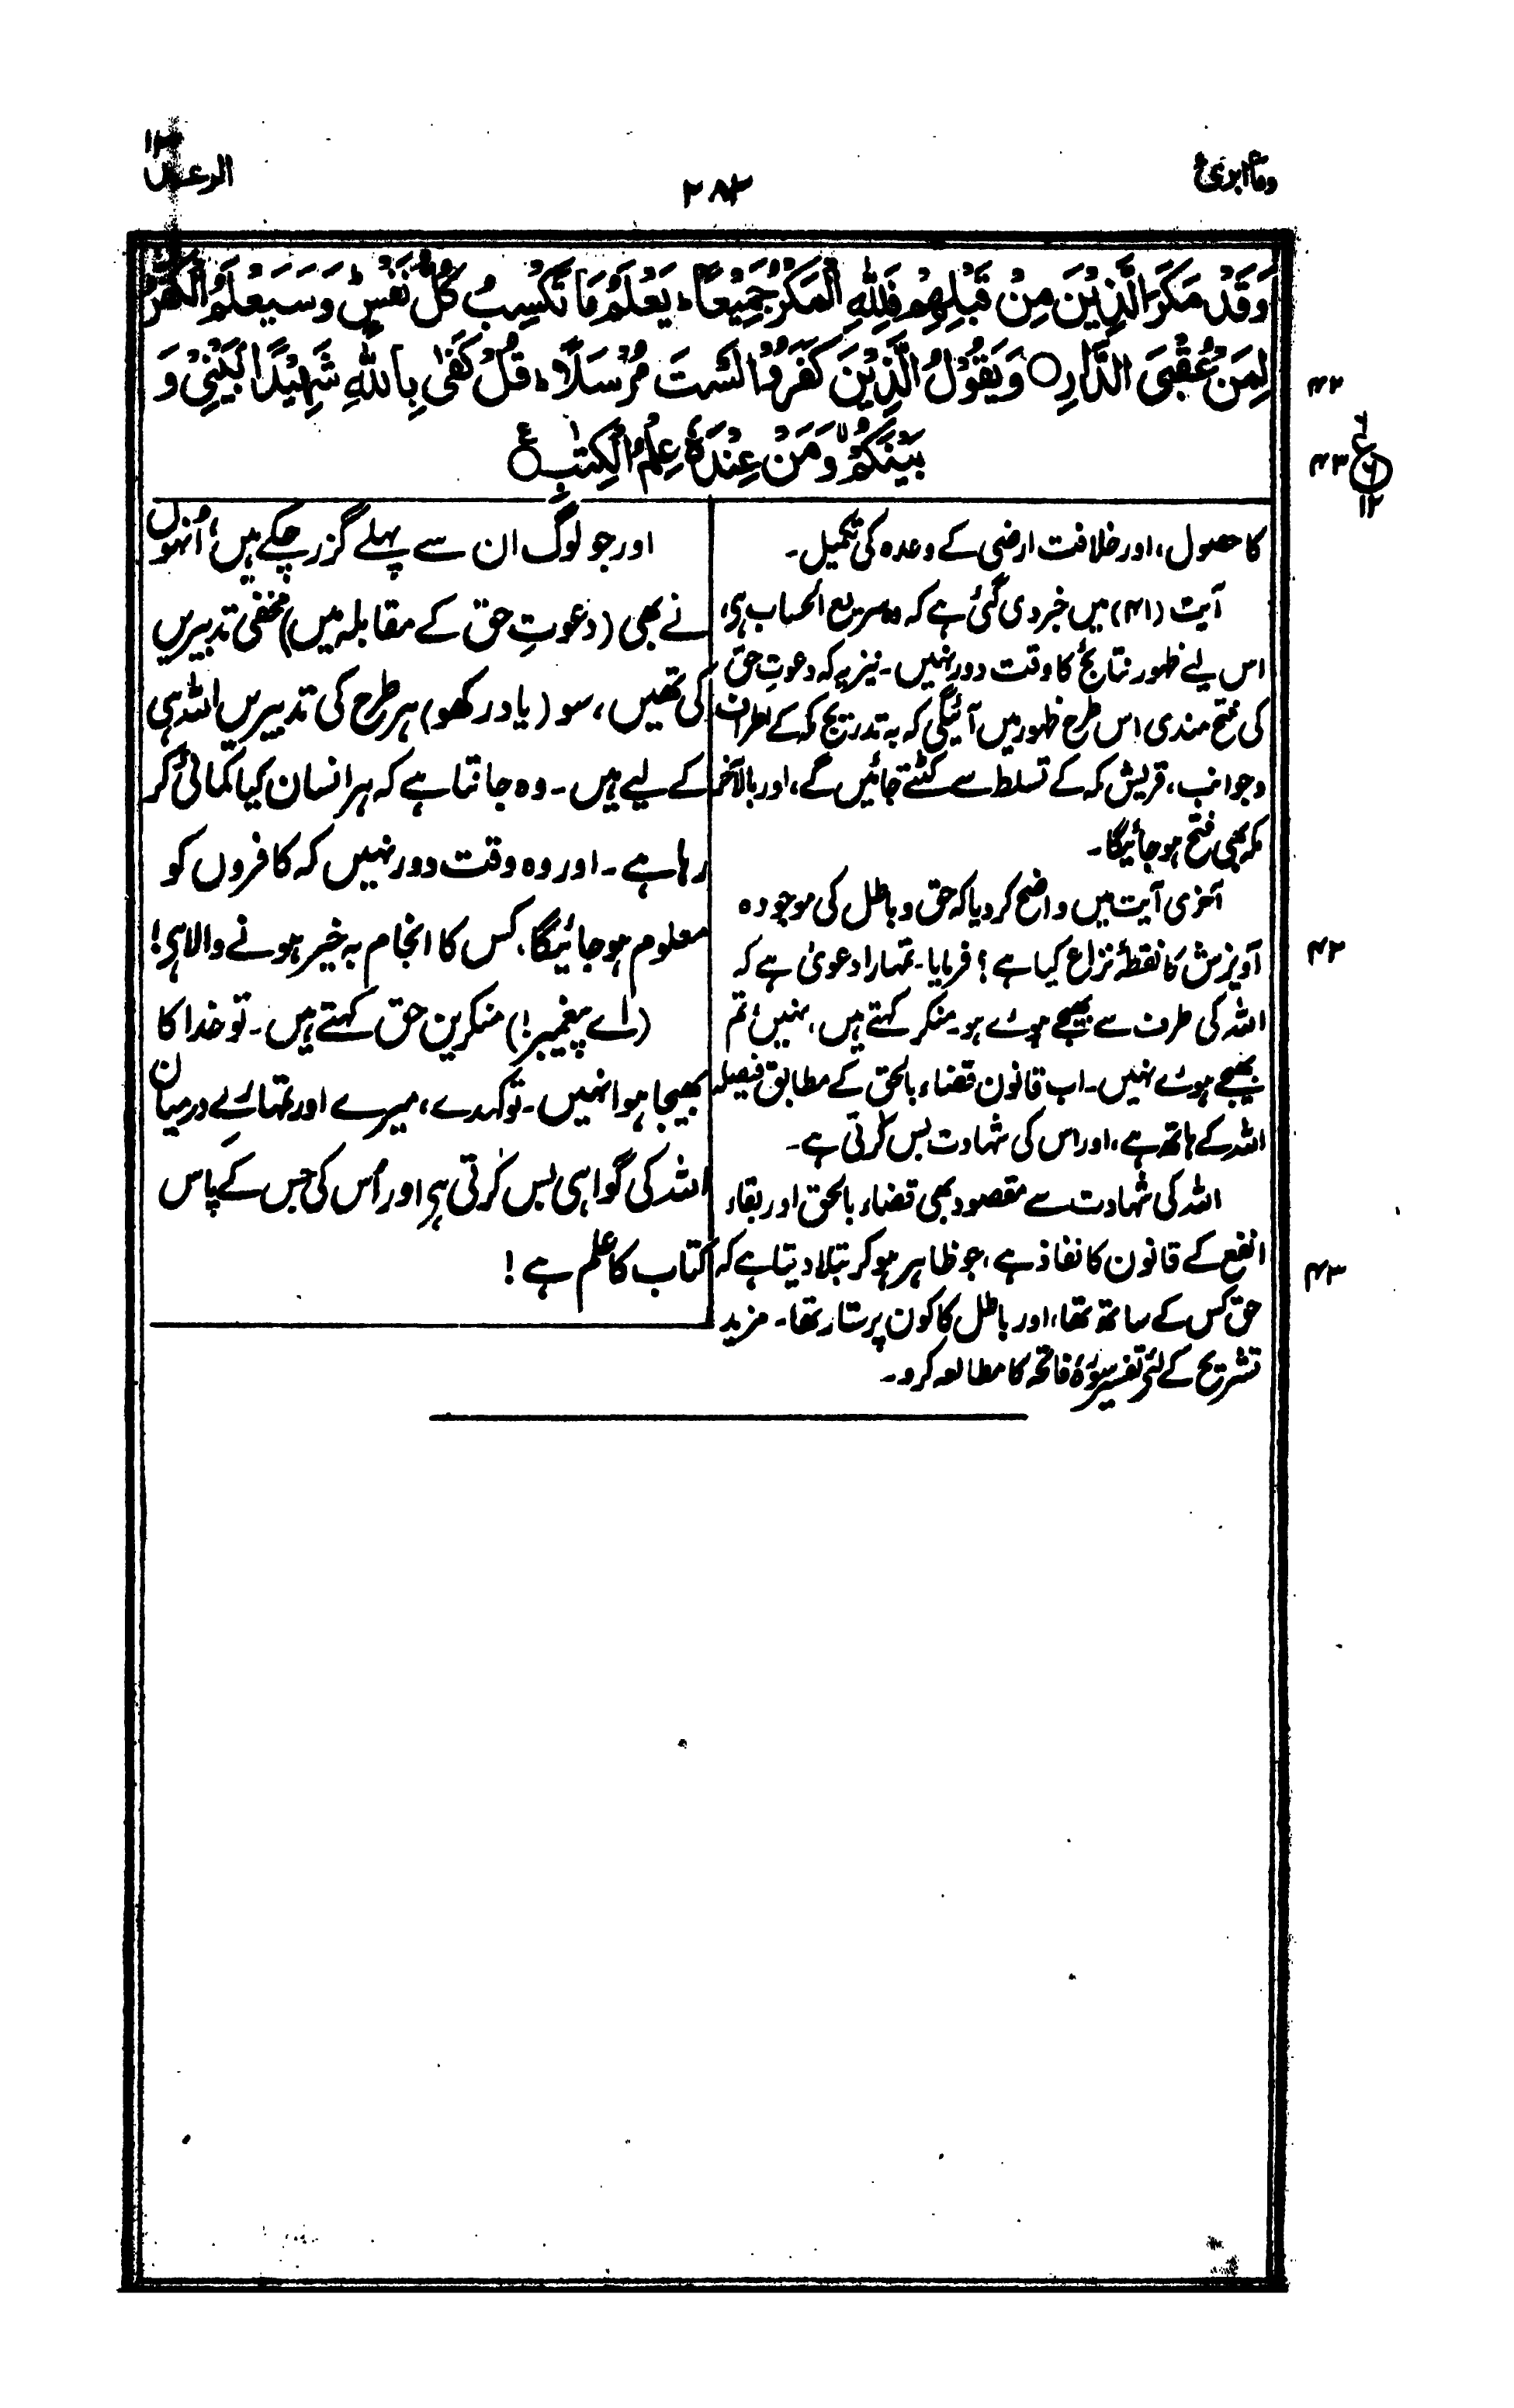 وما ابرئ
۲۸۳
الرعد ۱۳
وَقَدْ مَكَرَ الَّذِيْنَ مِنْ قَبْلِهِمْ فَلِلّٰهِ الْمَكْرُ جَمِيْعًا ؕ يَعْلَمُ مَا تَكْسِبُ كُلُّ نَفْسٍ ؕ وَسَيَعْلَمُ الْكُفّٰرُ
لِمَنْ عُقْبَى الدَّارِ ○ وَيَقُوْلُ الَّذِيْنَ كَفَرُوْا لَسْتَ مُرْسَلًا ؕ قُلْ كَفٰى بِاللّٰهِ شَهِيْدًۢا بَيْنِيْ وَ
۴۲
بَيْنَكُمْ ۙ وَمَنْ عِنْدَهٗ عِلْمُ الْكِتٰبِ ○ ع
۴۳
ع ۶
۱۲
کا حصول، اور خلافت ارضی کے وعدہ کی تکمیل۔
آیت (۴۱) میں خبر دی گئی ہے کہ وہ سریع الحساب ہی،
اس لیے ظہور نتائج کا وقت دور نہیں۔ نیز یہ کہ دعوتِ حق
کی فتح مندی اس طرح ظہور میں آئیگی کہ بہ تدریج مکہ کے اطراف
و جوانب، قریش مکہ کے تسلط سے کٹتے جائیں گے، اور بالآخر
مکہ بھی فتح ہو جائیگا۔
آخری آیت میں واضح کر دیا کہ حق و باطل کی موجودہ
آویزش کا نقطۂ نزاع کیا ہے؟ فرمایا۔ تمہارا دعویٰ ہے کہ
اللہ کی طرف سے بھیجے ہوئے ہو۔ منکر کہتے ہیں، نہیں، تم
بھیجے ہوئے نہیں۔ اب قانون قضاء بالحق کے مطابق فیصلہ
اللہ کے ہاتھ ہے، اور اس کی شہادت بس کرتی ہے۔
اللہ کی شہادت سے مقصود بھی قضاء بالحق اور بقاء
انفع کے قانون کا نفاذ ہے، جو ظاہر ہو کر بتلا دیتا ہے کہ
حق کس کے ساتھ تھا، اور باطل کا کون پرستار تھا۔ مزید
تشریح کے لئے تفسیر سورۂ فاتحہ کا مطالعہ کرو۔
اور جو لوگ ان سے پہلے گزر چکے ہیں، اُنہوں
نے بھی (دعوتِ حق کے مقابلہ میں) مخفی تدبیریں
کی تھیں، سو (یاد رکھو) ہر طرح کی تدبیریں اللہ ہی
کے لیے ہیں۔ وہ جانتا ہے کہ ہر انسان کیا کمائی کر
رہا ہے۔ اور وہ وقت دور نہیں کہ کافروں کو
معلوم ہو جائیگا، کس کا انجام بہ خیر ہونے والا ہی!
۴۲
(اے پیغمبر!) منکرین حق کہتے ہیں۔ تو خدا کا
بھیجا ہوا نہیں۔ تو کہدے، میرے اور تمہارے درمیان
اللہ کی گواہی بس کرتی ہی اور اُس کی جس کے پاس
کتاب کا علم ہے!
۴۳